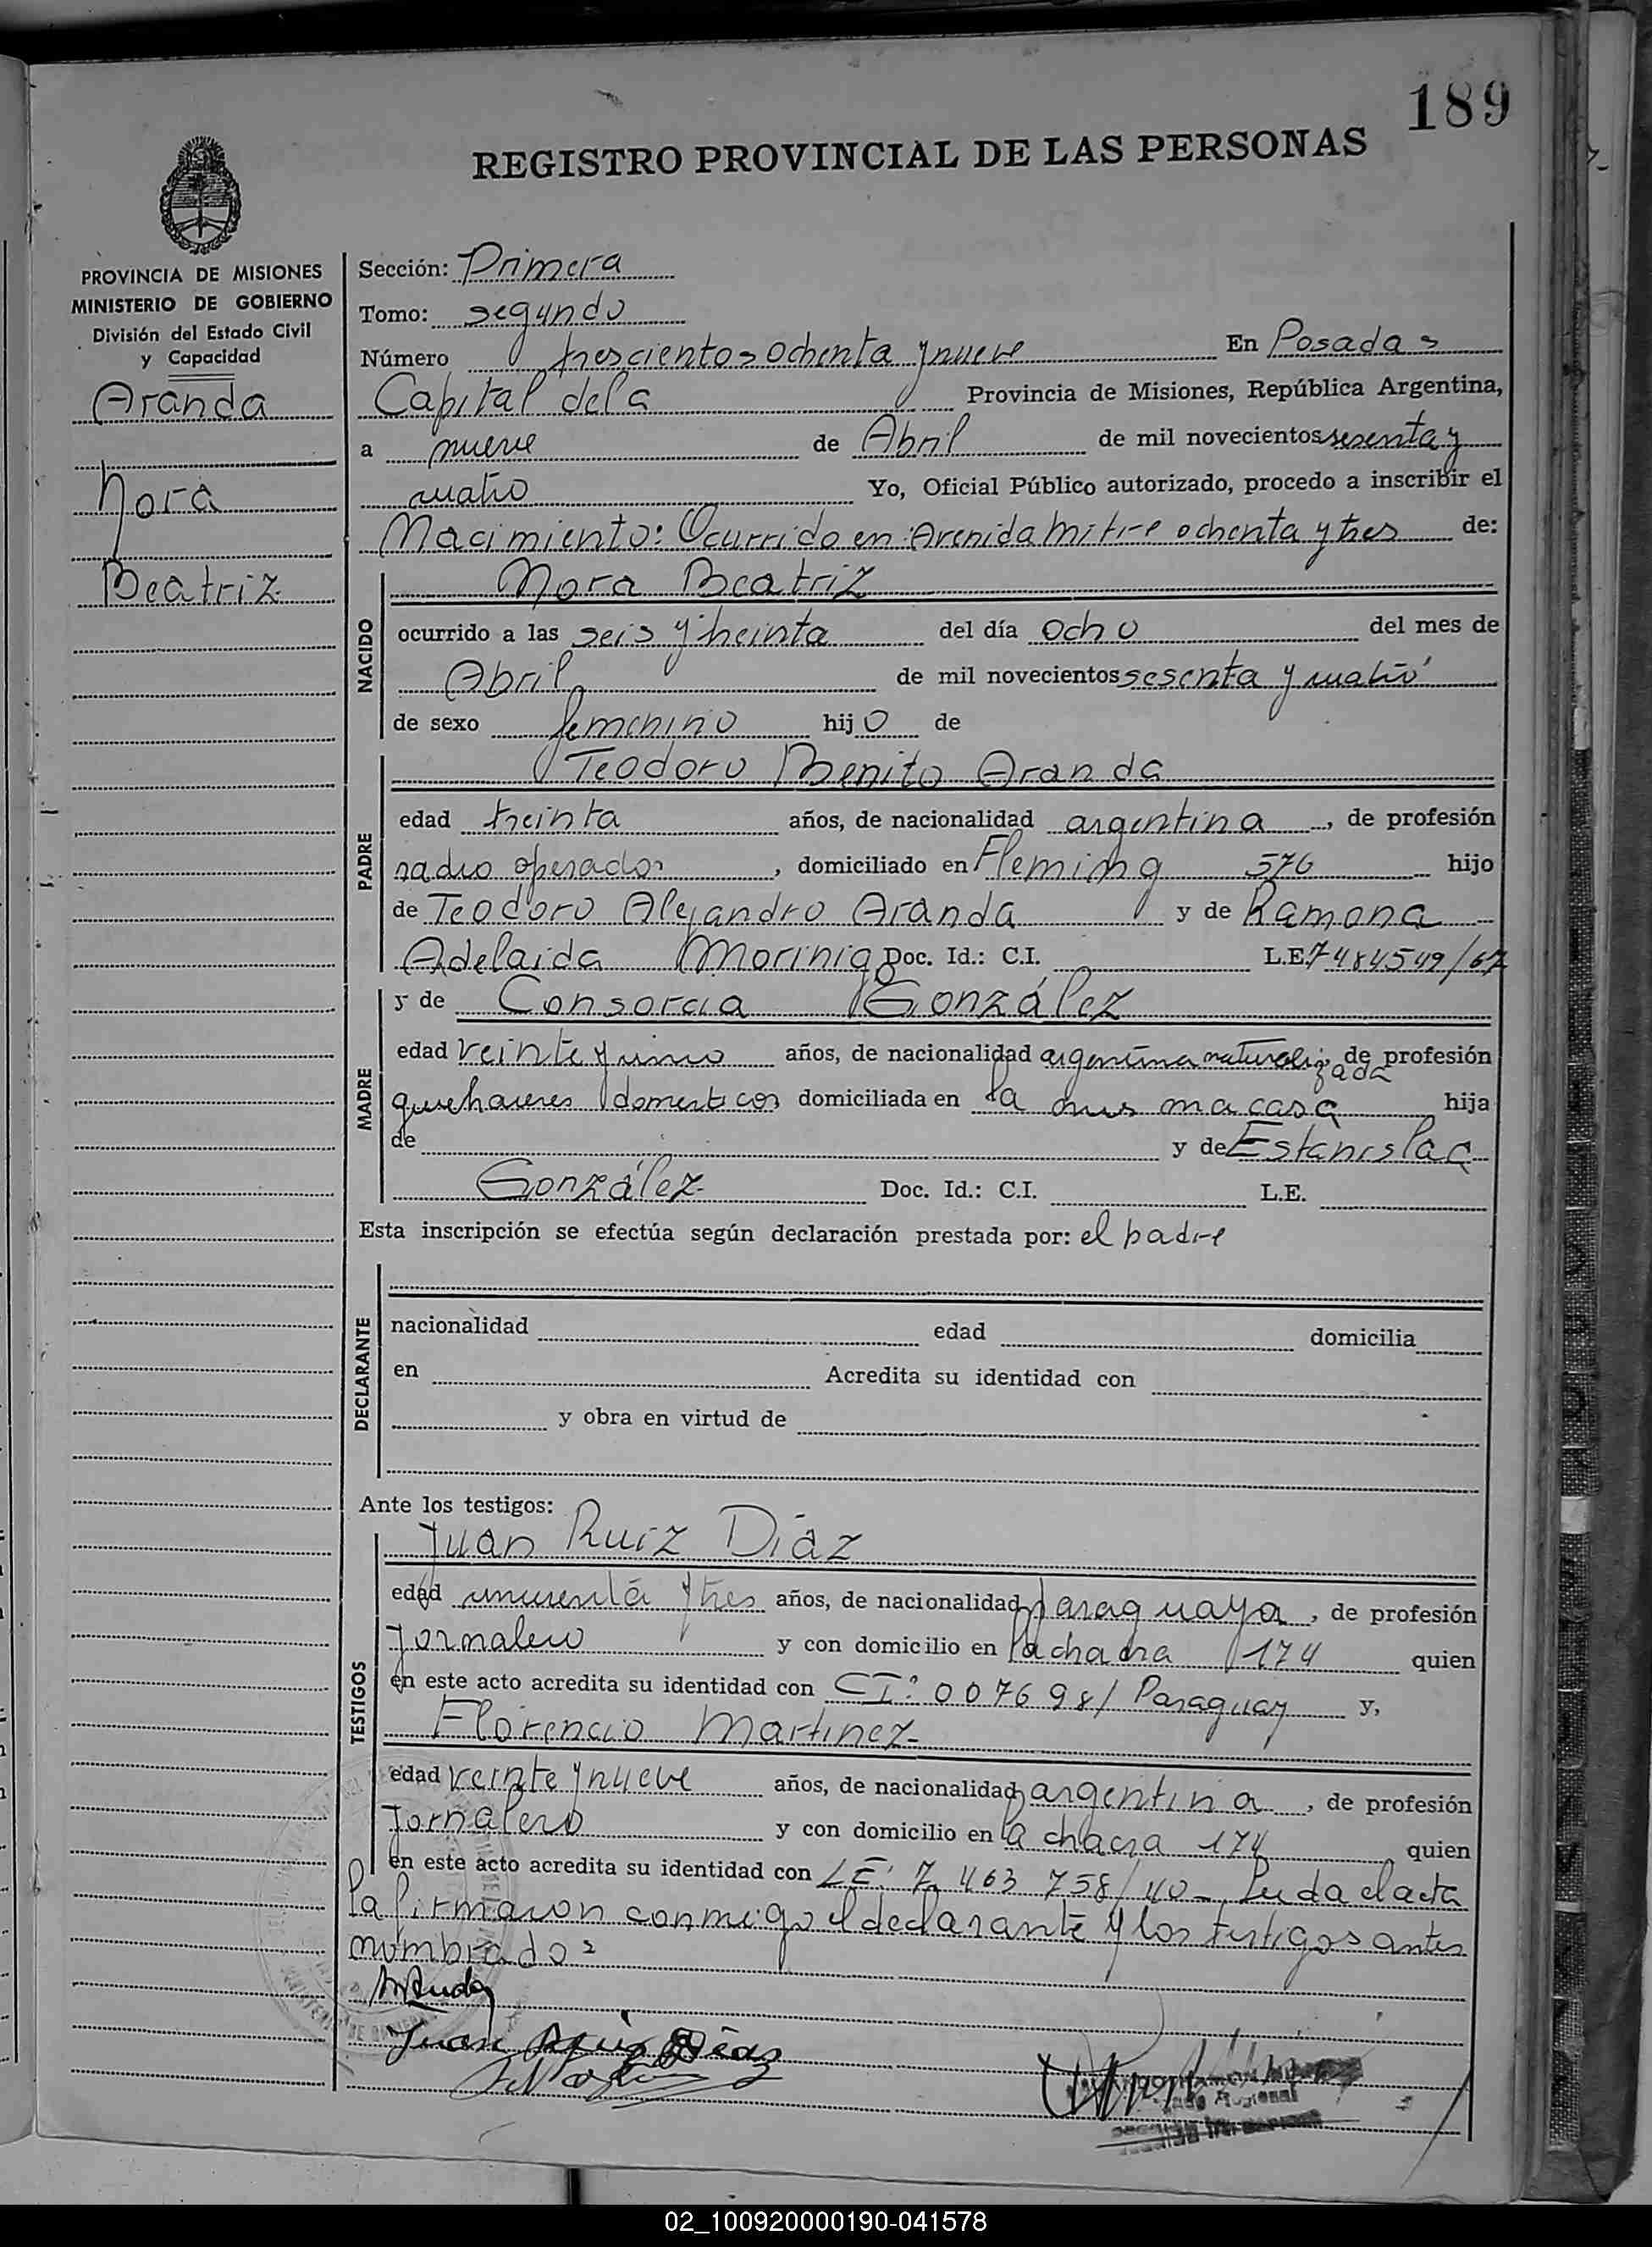 189
REGISTRO PROVINCIAL DE LAS PERSONAS
PROVINCIA DE MISIONES
MINISTERIO DE GOBIERNO
División del Estado Civil
y Capacidad
Aranda
Nora
Beatriz
Sección: Primera
Tomo: segundo
Número trescientos ochenta y nueve En Posadas
Capital de la Provincia de Misiones, República Argentina,
a nueve de Abril de mil novecientos sesenta y
cuatro Yo, Oficial Público autorizado, procedo a inscribir el
Nacimiento: Ocurrido en Avenida Mitre ochenta y tres de:
NACIDO
Nora Beatriz
ocurrido a las seis y treinta del día ocho del mes de
Abril de mil novecientos sesenta y cuatro
de sexo femenino hijo de
PADRE
Teodoro Benito Aranda
edad treinta años, de nacionalidad argentina, de profesión
radio operador, domiciliado en Fleming 576 hijo
de Teodoro Alejandro Aranda y de Ramona
Adelaida Morinigo Doc. Id.: C.I. L.E. 7484549/67
MADRE
y de Consorcia González
edad veinte y uno años, de nacionalidad argentina naturalizada de profesión
quehaceres domesticos domiciliada en la misma casa hija
de y de Estanislaa
González Doc. Id.: C.I. L.E.
Esta inscripción se efectúa según declaración prestada por: el padre
DECLARANTE
nacionalidad edad domicilia
en Acredita su identidad con
y obra en virtud de
Ante los testigos:
TESTIGOS
Juan Ruiz Diaz
edad cincuenta y tres años, de nacionalidad paraguaya, de profesión
Jornalero y con domicilio en la chacra 174 quien
en este acto acredita su identidad con CI: 007698/ Paraguay y,
Florencio Martinez
edad veinte y nueve años, de nacionalidad argentina, de profesión
Jornalero y con domicilio en la chacra 174 quien
en este acto acredita su identidad con LE: 7.463.758/40- Leida el acta
la firmaron conmigo el declarante y los testigos antes
nombrados
Juan Ruiz Diaz
02_100920000190-041578